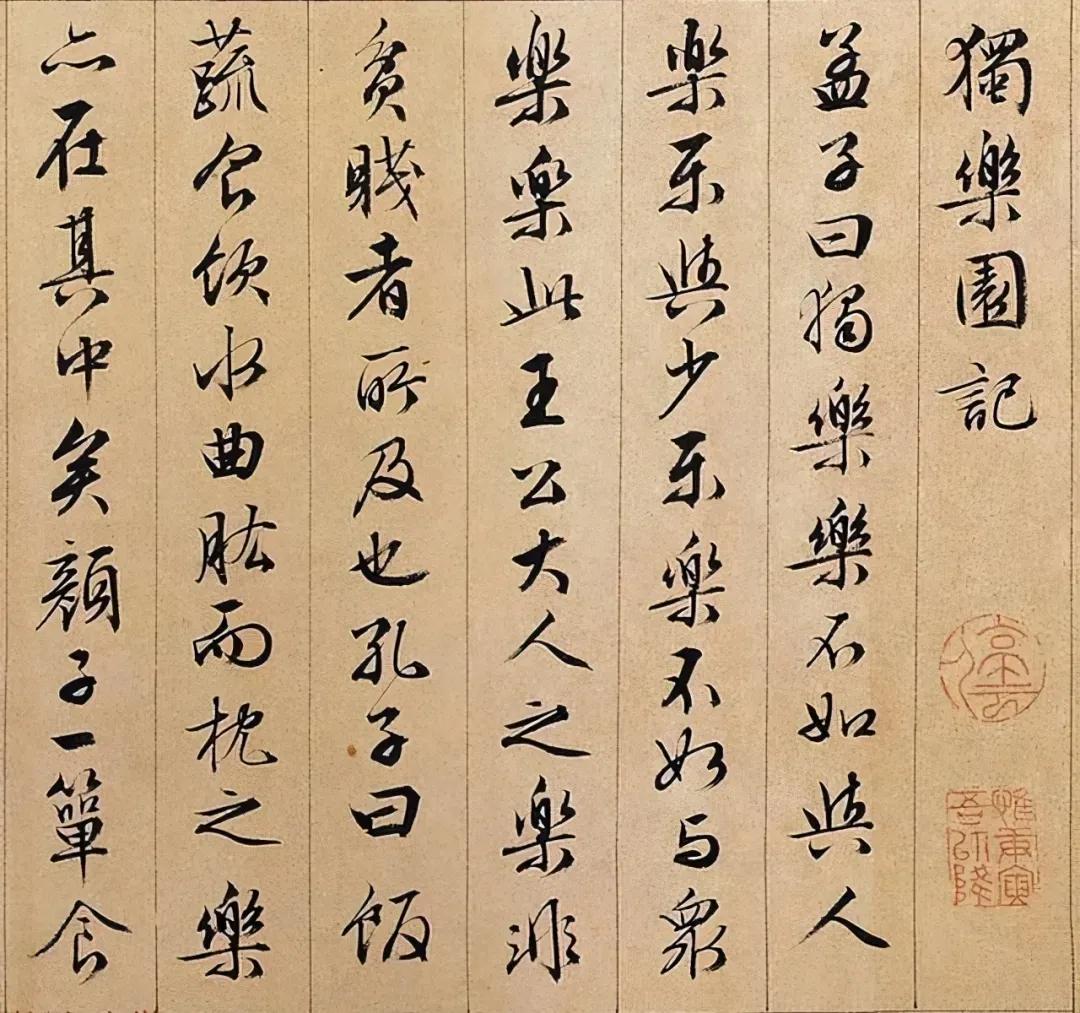 獨樂園記
停雲
惟庚寅吾以降
孟子曰獨樂樂不如與人
樂乐與少乐樂不如与衆
樂樂此王公大人之樂非
貧賤者所及也孔子曰飯
蔬食飲水曲肱而枕之樂
亦在其中矣顏子一簞食